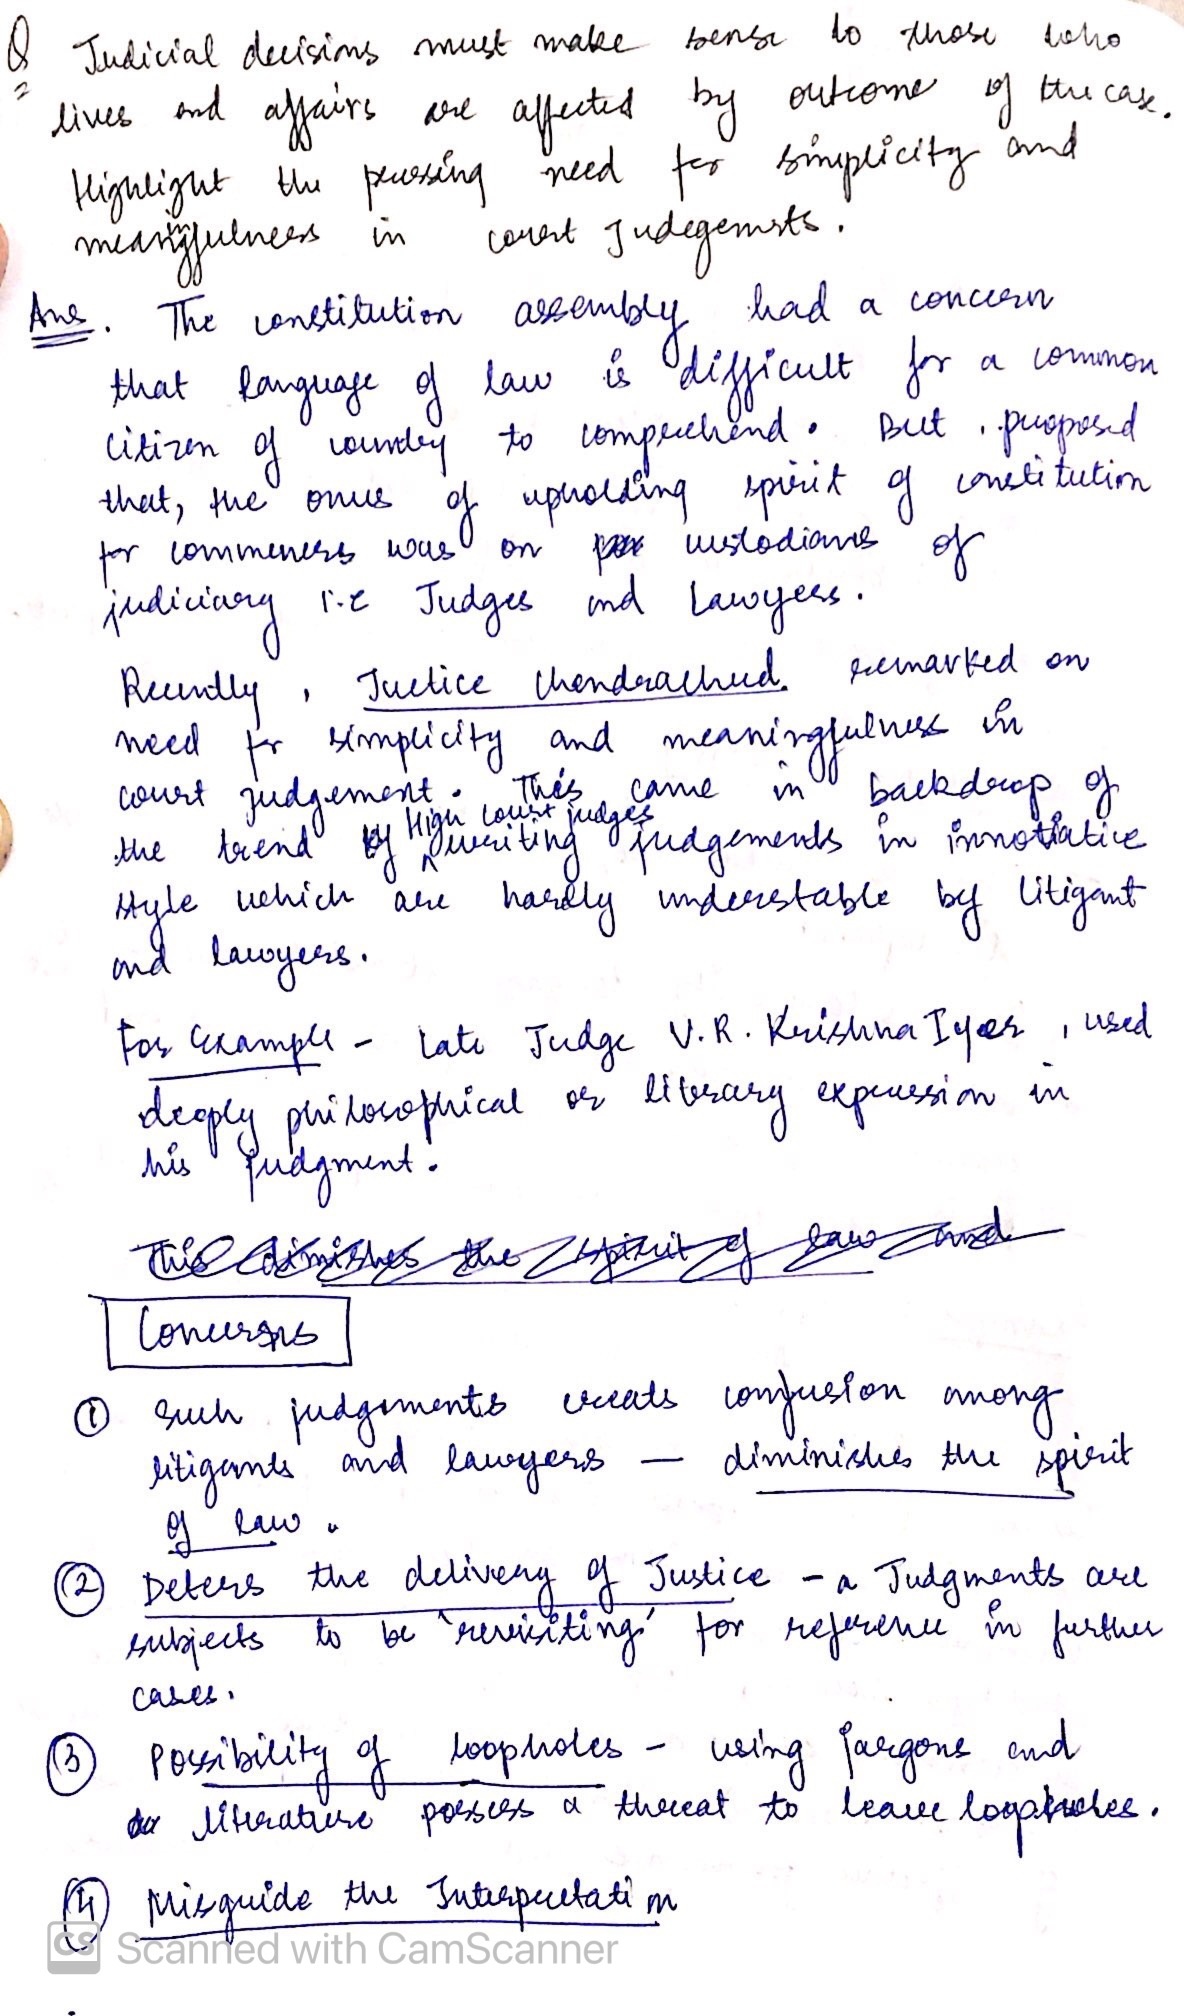 Q Judicial decisions must make sense to those who
lives and affairs are affected by outcome of the case.
Highlight the pressing need for simplicity and
meaningfulness in court Judegemnts.
Ans. The constitution assembly had a concern
that language of law is difficult for a common
citizen of country to comprehend. But, proposed
that, the onus of upholding spirit of constitution
for commeners was on custodians of
judiciary i.e Judges and Lawyers.
Recently, Justice Chandrachud. remarked on
need for simplicity and meaningfulness in
court judgement. This came in backdrop of
the trend by High court judges writing judgements in innotiative
style which are hardly understable by litigant
and lawyers.
For Example - Late Judge V.R. Krishna Iyer, used
deeply philosophical or literary expression in
his judgment.
This diminshes the spirit of law and
Concerns
① Such judgements creats confusion among
litigants and lawyers — diminishes the spirit
of law.
② Deters the delivery of Justice - a Judgments are
subjects to be 'revisiting' for reference in further
cases.
③ Possibility of loopholes - using jargons and
literature possess a threat to leave loopholes.
④ Misguide the Interpretation
CS Scanned with CamScanner